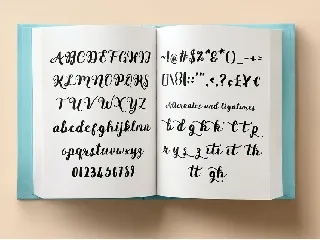 ABCDEFGHIJ
KLMNOPQRS
TUVWXYZ
abcdefghijklmn
opqrstuvwxyz
0123456789
~!@#$%^&*()_-+=
{}\|[]::"',.<>?¢£¥€
Alternates and Ligatures
b d g h k l t p
r y s z iti it th
tt gh